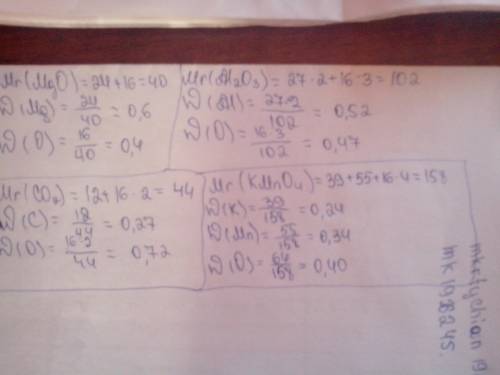 Mr(MgO)=24+16=40
W(Mg)=24/40=0,6
W(O)=16/40=0,4
Mr(Al2O3)=27·2+16·3=102
W(Al)=27·2/102=0,52
W(O)=16·3/102=0,47
Mr(CO2)=12+16·2=44
W(C)=12/44=0,27
W(O)=16·2/44=0,72
Mr(KMnO4)=39+55+16·4=158
W(K)=39/158=0,24
W(Mn)=55/158=0,34
W(O)=64/158=0,40
mkrtychian